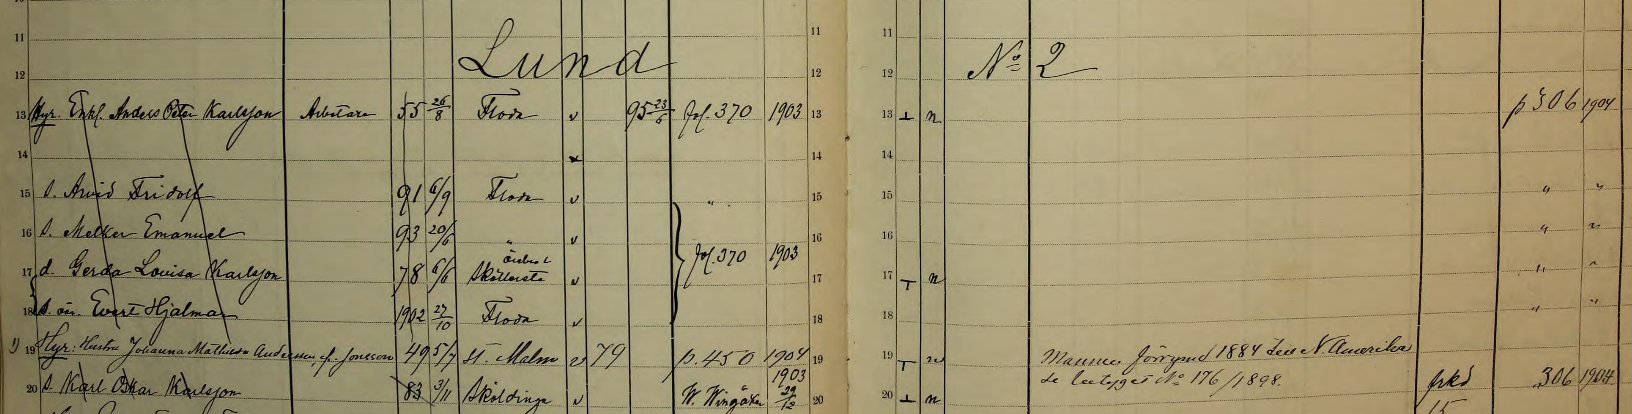 11 11 11
Lund 12 12 12 No 2
13 Hyr. Enkl. Anders Peter Karlsson Arbetare 55 26/8 Floda v 95 23/6 fol. 370 1903 13 13 n p 306 1904
14 14 14
15 s. Arvid Fridolf 91 6/9 Floda v " 15 15 " "
16 s. Melker Emanuel 93 20/6 " v 16 16 " "
17 d. Gerda Lovisa Karlsson 78 6/6 Sköllersta v fol. 370 1903 17 17 n " "
18 s. Evert Hjalmar 1902 27/10 Floda v 18 18 " "
19 Hyr. Hustru Johanna Mathilda f. Jonsson 49 5/7 St. Malm v 79 p. 450 1904 19 19 Mannen 1884 N Amerika
se betyget No 176/1898.
20 s. Karl Oskar Karlsson 83 3/11 Sköldinge v W. Wingåker 1903 29/12 20 20 n 306 1904
15